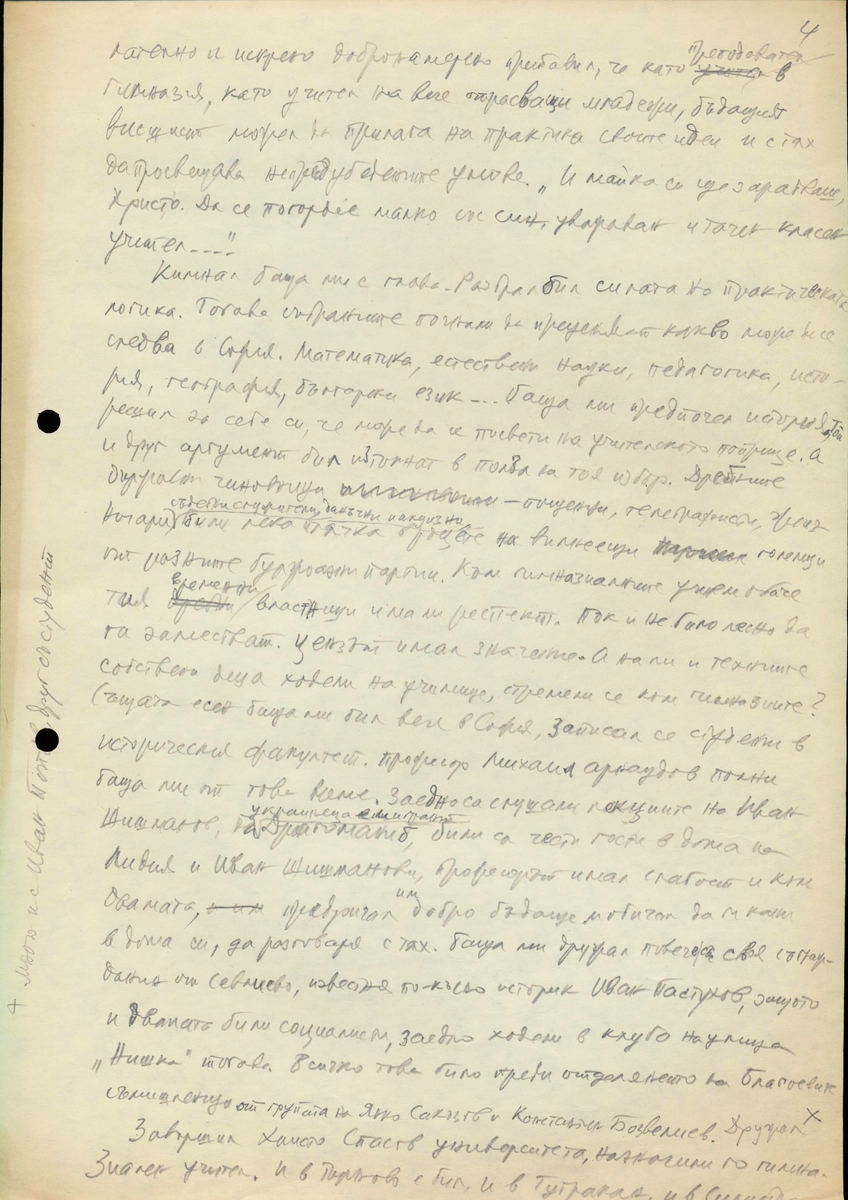 4
и искрено добронамерено прибавил, че като преподавател в
гимназия, като учител на вече отрасващи младежи, бъдащият
висшист можел да прилага на практика своите идеи и с тях
да просвещава непредубедените умове. „И майка си ще зарадваш,
Христо. Да се погордее малко със син, уважаван и точен класен
учител----".
Кимнал баща ми с глава. Разбрал бил силата на практическата
логика. Тогава събраните почнали да преценяват какво може да се
следва в София. Математика, естествени науки, педагогика, исто-
рия, география, български език --- Баща ми предпочел историята. Той
решил за себе си, че може да се посвети на учителското поприще. А
и друг аргумент бил изтъкнат в полза на тоя избор. Дребните
чиновници – пощенци, телеграфисти,
съдебни служители,
нотариуси били лека плячка в ръцете на вилнеещи големци
от разните буржоазни партии. Към гимназиалните учители обаче
тия временни властници имали респект. Пък и не било лесно да
ги заместват. Цензът имал значение. А нали и техните
собствени деца ходели на училище, стремели се към гимназиите?
Същата есен баща ми бил вече в София, записал се студент в
историческия факултет. Професор Михаил Арнаудов помни
баща ми от това време. Заедно са слушали лекциите на Иван
Шишманов, на украинеца емигрант Драгоманов, били са чести гости в дома на
Лидия и Иван Шишманови, професорът имал слабост и към
двамата, предричал им добро бъдаще и обичал да ги кани
в дома си, да разговаря с тях. Баща ми дружал повече със своя съграж-
данин от Севлиево, известния по-късно историк Иван Пастухов, защото
и двамата били социалисти, заедно ходели в клуба на улица
„Нишка" тогава. Всичко това било преди отделянето на Благоевите
съмишленици от групата на Янко Сакъзов и Константин Бозвелиев. Дружал ×
Завършил Христо Спасов университета, назначили го гимна-
зиален учител. И в Търново е бил, и в Тутракан, и в
+ много и с Иван друг състудент